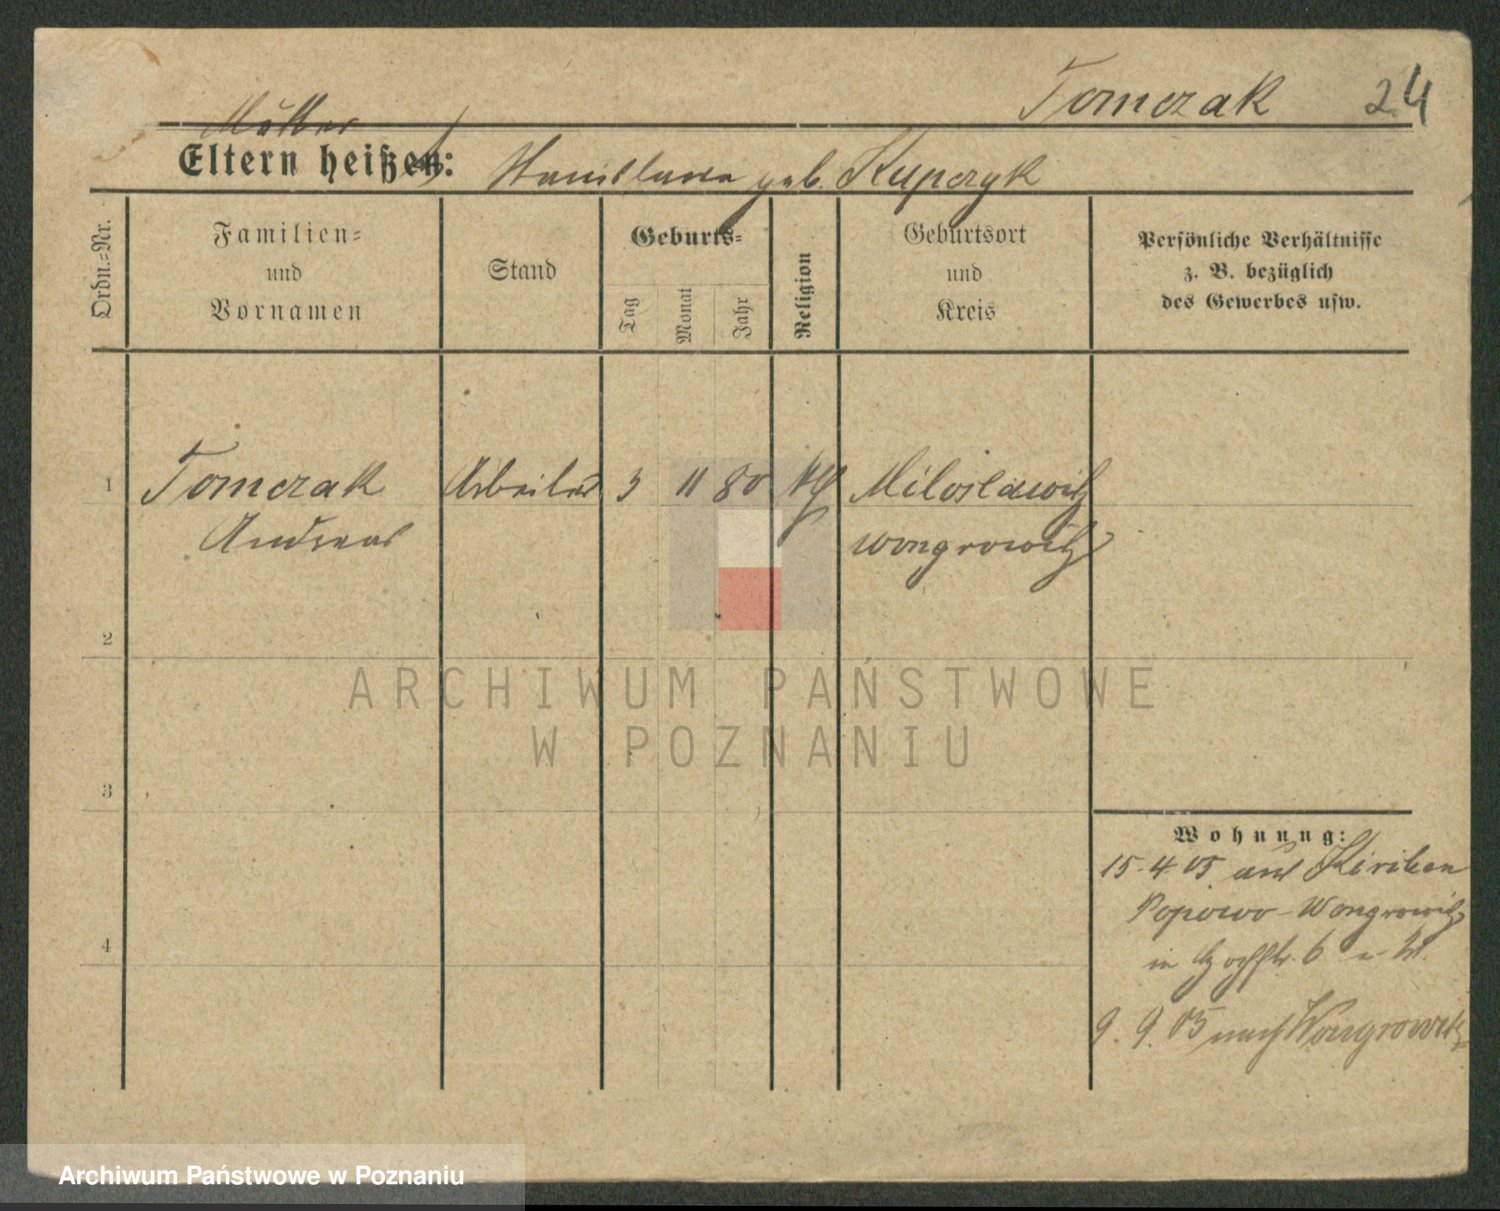 Tomczak 24
Mutter
Eltern heißen: Stanislawa geb. Kupczyk
Ordn.-Nr.
Familien-
und
Vornamen
Stand
Geburts-
Tag
Monat
Jahr
Religion
Geburtsort
und
Kreis
Persönliche Verhältnisse
z. B. bezüglich
des Gewerbes usw.
1 Tomczak Arbeiter 3 11 80 Miloslawitz
Andreas Wongrowitz
2
3
4
Wohnung:
15.4.05 aus
Popowo-Wongrowitz
in 6
9.9.05 nach Wongrowitz
ARCHIWUM PAŃSTWOWE
W POZNANIU
Archiwum Państwowe w Poznaniu